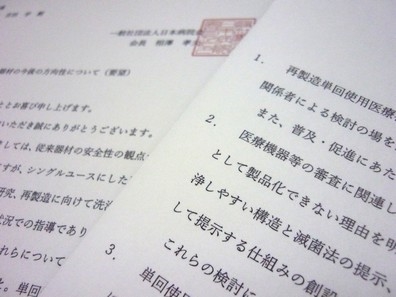 一般社団法人日本病院会
会長 相澤 孝夫
器材の今後の方向性について(要望)
とお喜び申し上げます。
いただき誠にありがとうございます。
しては、従来器材の安全性の観点
すが、シングルユースにした
研究、再製造に向けて洗浄
状況での指導であり
れらについて
1. 再製造単回使用医療
関係者による検討の場を
また、普及・促進にあた
2. 医療機器等の審査に関連し
として製品化できない理由を明
浄しやすい構造と滅菌法の提示、
して提示する仕組みの創設
これらの検討に
3. 単回使